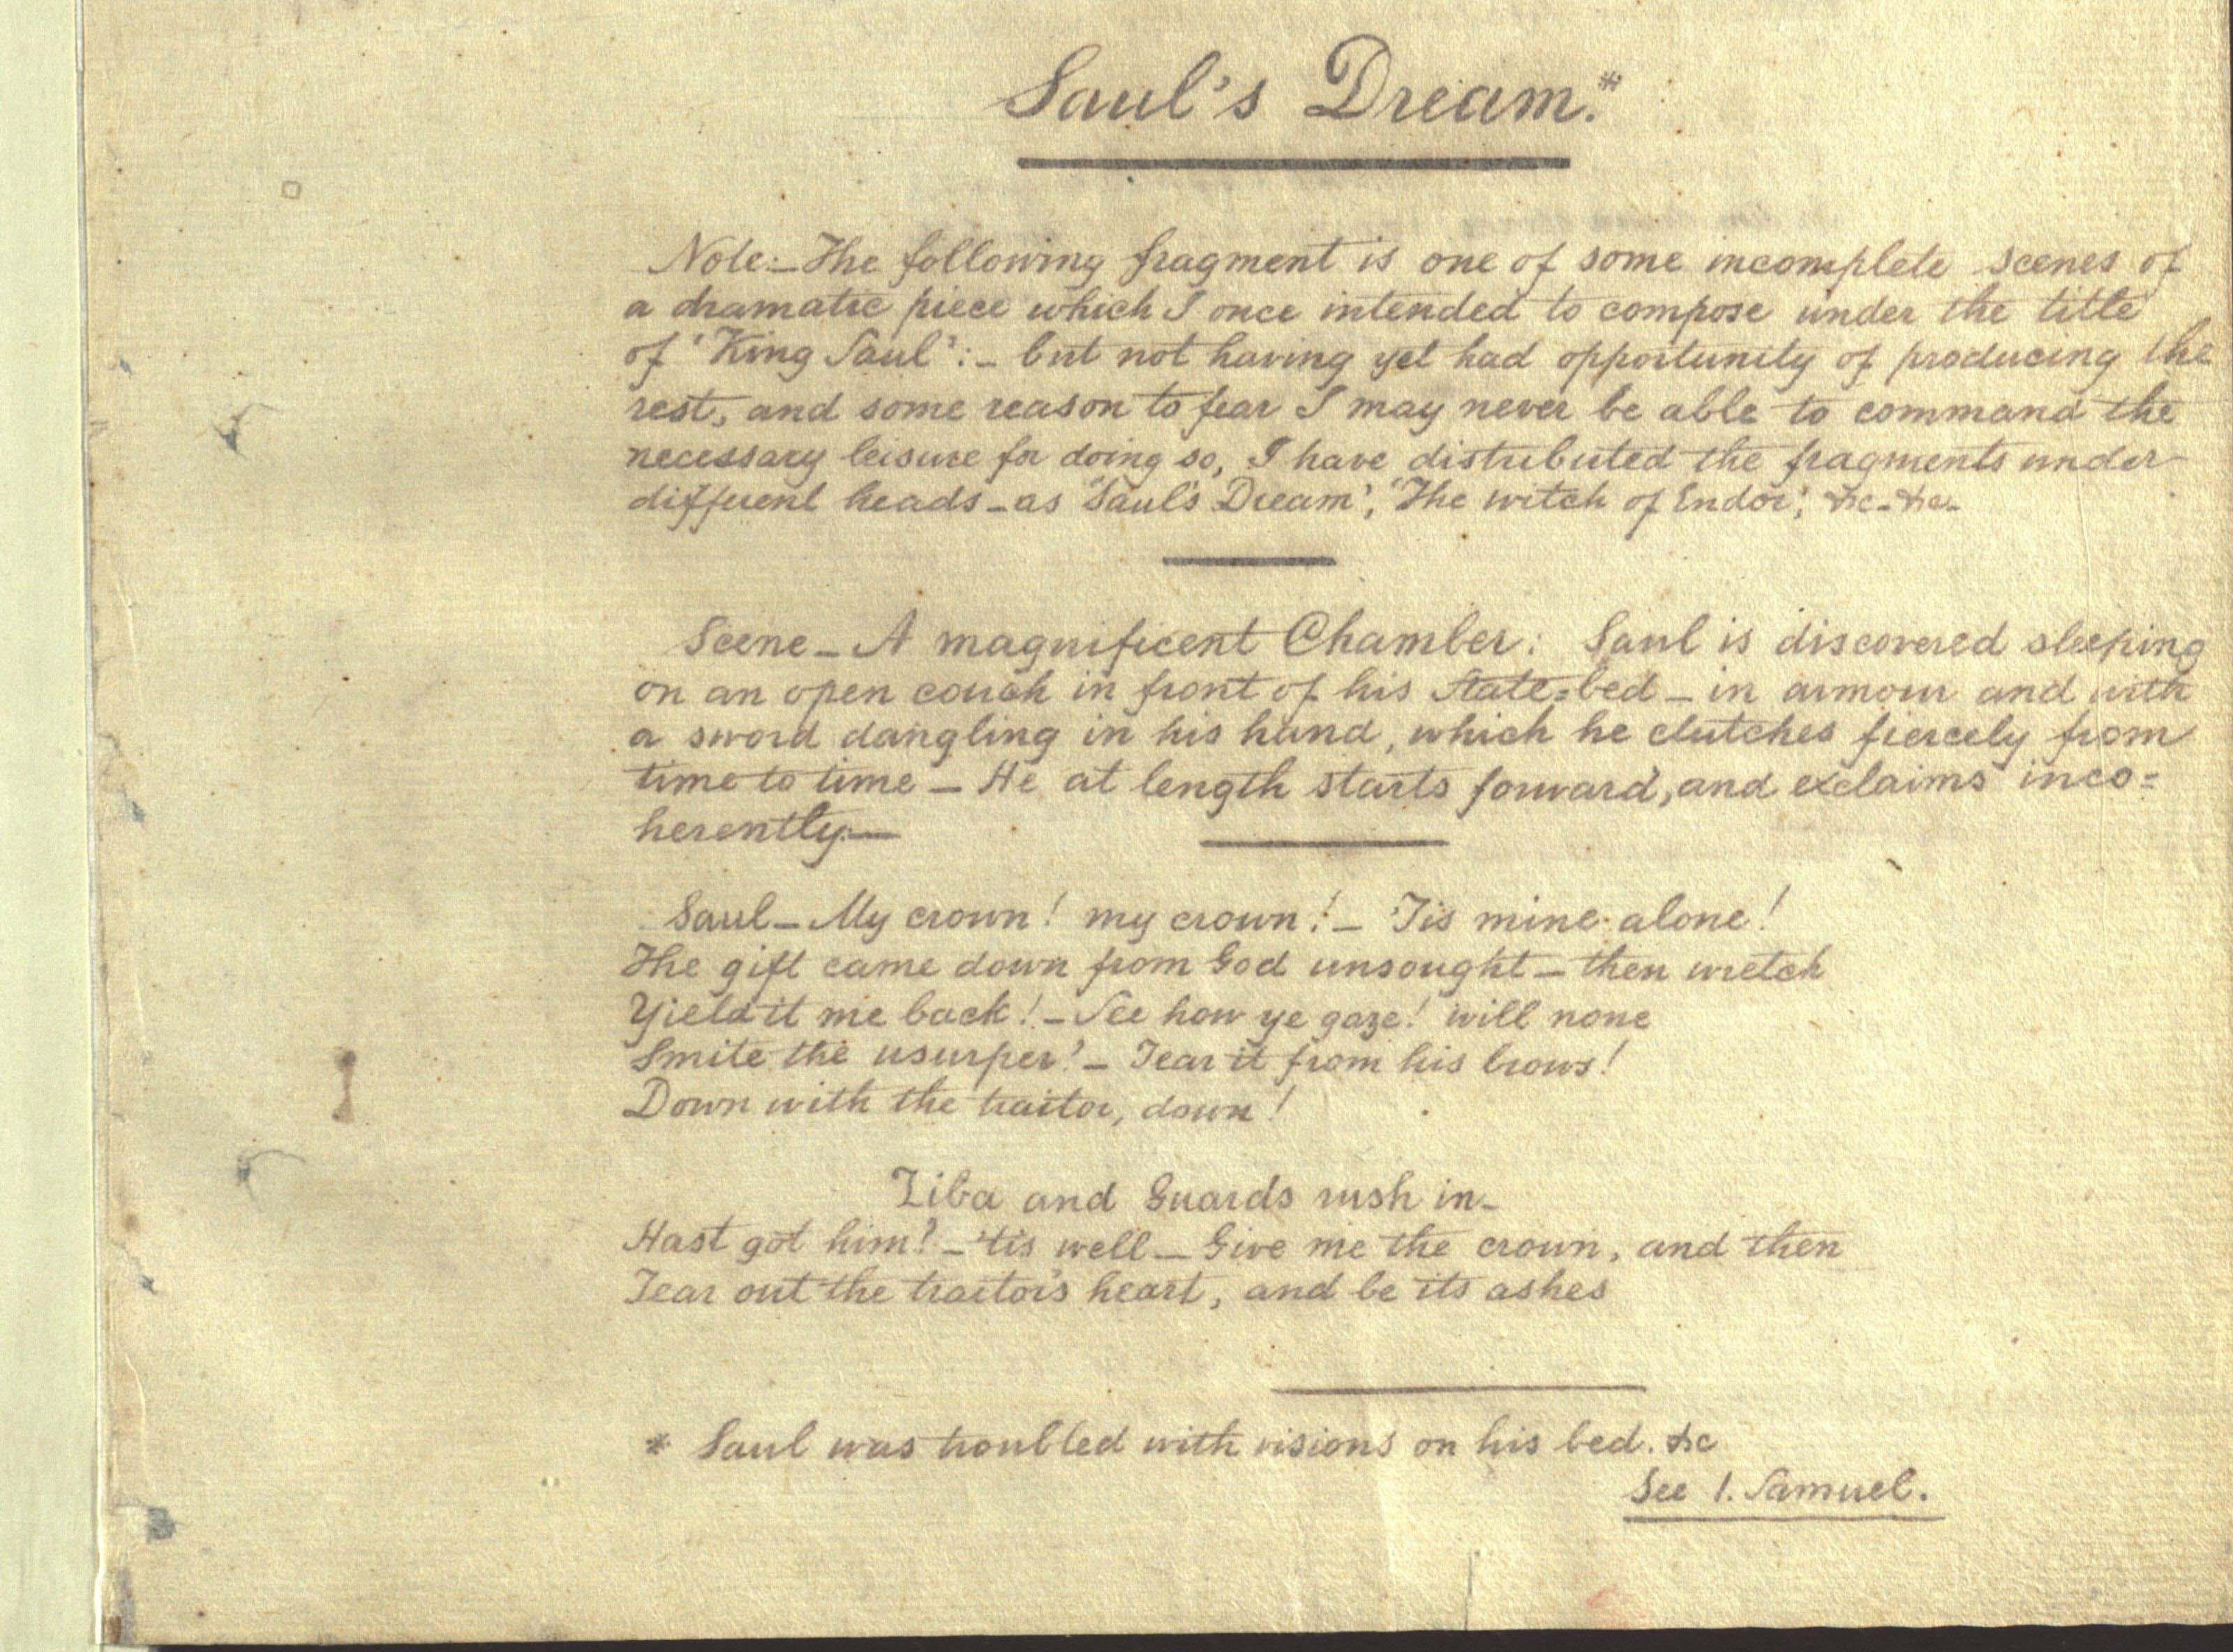 Saul's Dream.*
Note:— The following fragment is one of some incomplete scenes of
a dramatic piece which I once intended to compose under the title
of 'King Saul':— but not having yet had opportunity of producing the
rest, and some reason to fear I may never be able to command the
necessary leisure for doing so, I have distributed the fragments under
different heads — as 'Saul's Dream', 'The witch of Endor', &c. &c.
Scene — A magnificent Chamber: Saul is discovered sleeping
on an open couch in front of his State=bed — in armour and with
a sword dangling in his hand, which he clutches fiercely from
time to time — He at length starts forward, and exclaims inco=
herently:—
Saul — My crown! my crown! — 'Tis mine alone!
The gift came down from God unsought — then wretch
Yield it me back! — See how ye gaze! will none
Smite the usurper? — Tear it from his brows!
Down with the traitor, down!
Ziba and Guards rush in —
Hast got him? — 'tis well — Give me the crown, and then
Tear out the traitor's heart, and be its ashes
* Saul was troubled with visions on his bed. &c
See 1. Samuel.